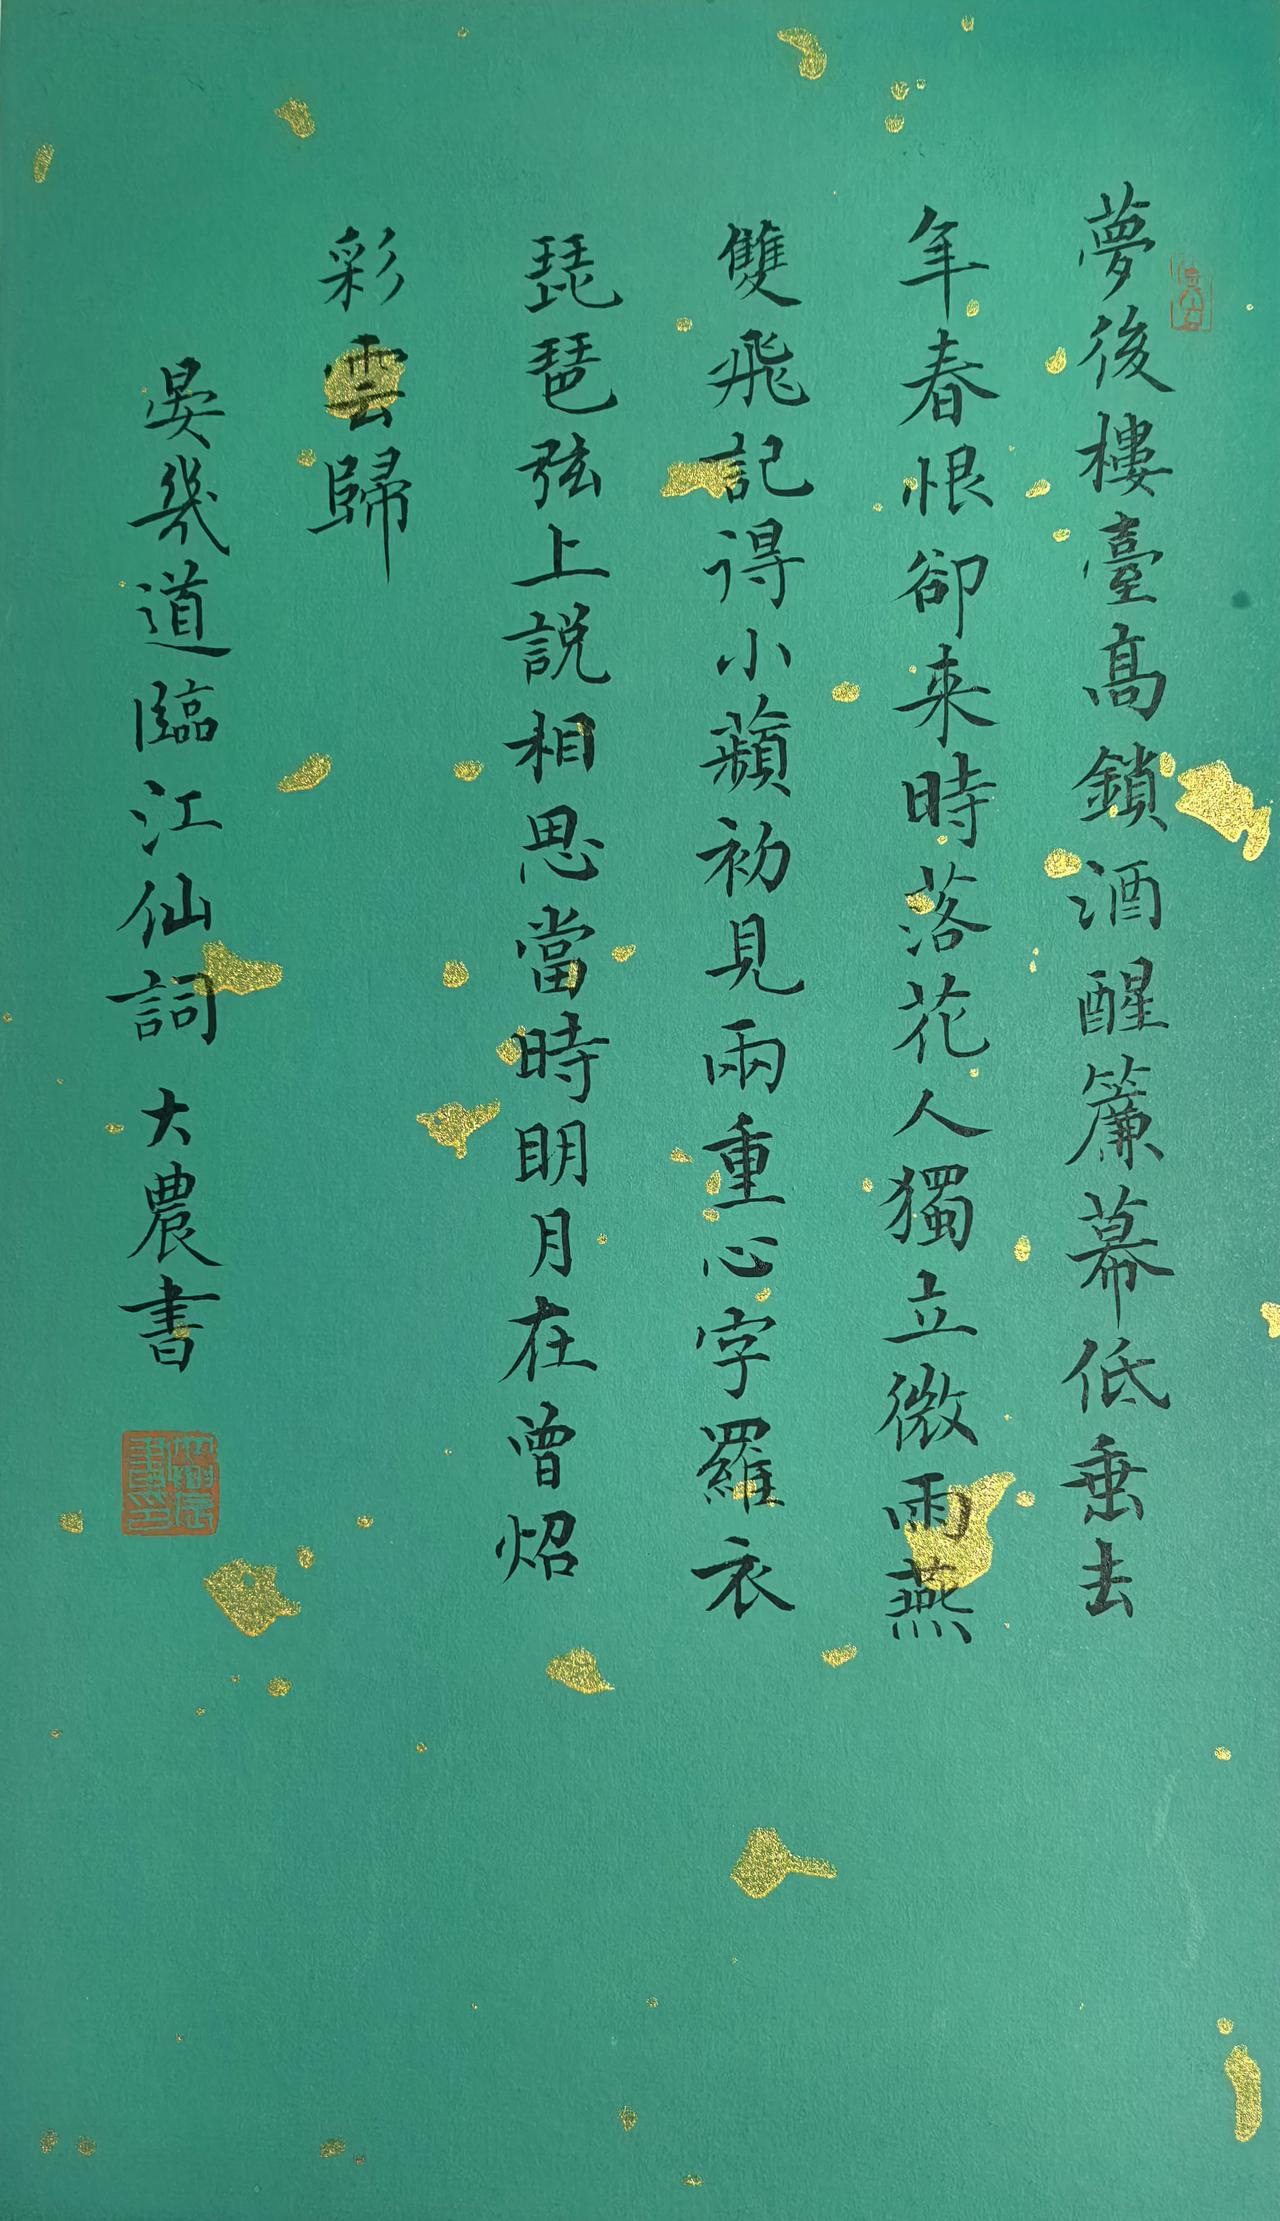 夢後樓臺高鎖酒醒簾幕低垂去
年春恨卻來時落花人獨立微雨燕
雙飛記得小蘋初見兩重心字羅衣
琵琶弦上説相思當時明月在曾炤
彩雲歸
晏幾道臨江仙詞 大農書